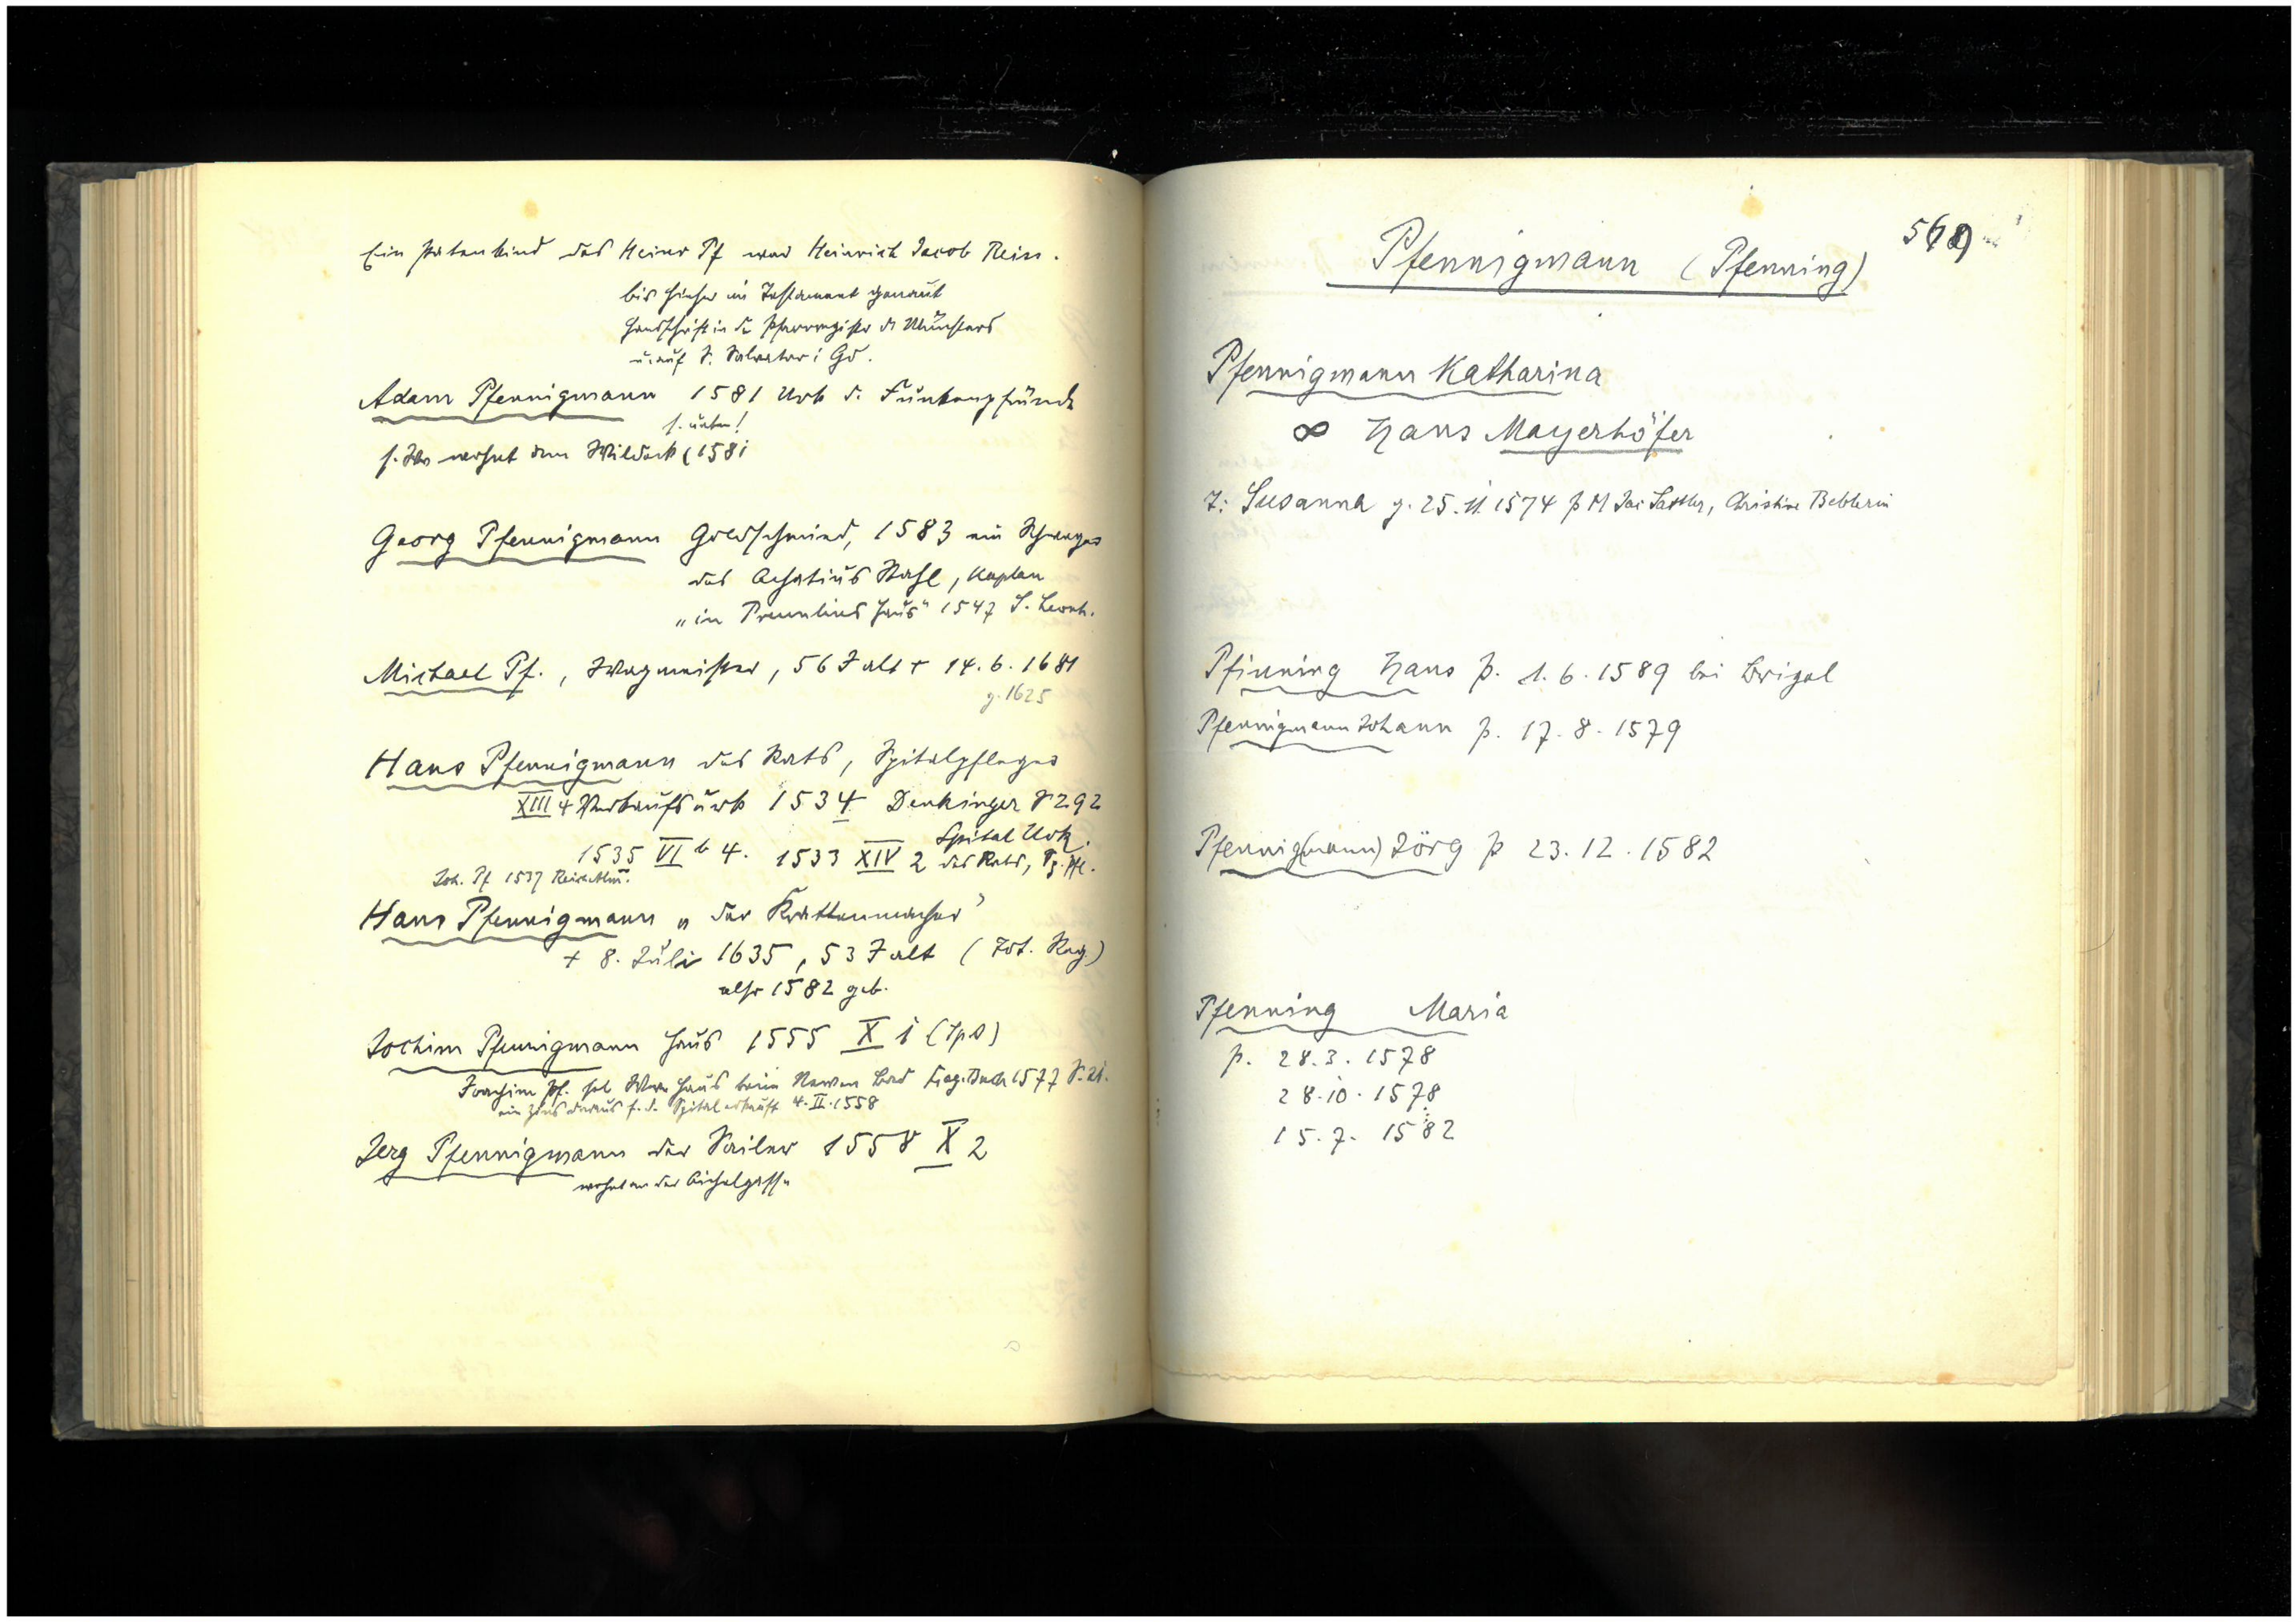 Ein Patenkind des Heinr Pf war Heinrich Jacob Reiss.
bis hieher im Testament genannt
Handschrift in d. Pfarrregister d. Münsters
u. auf S. Salvator i Gd.
Adam Pfennigmann 1581 Urk d.
s. unten!
(1581
Georg Pfennigmann Goldschmied, 1583 ein Schwager
des Achatius Stahl, Kaplan
„in Haus" 1547 S. Leonh.
Michael Pf., Wagmeister, 56 J alt + 14. 6. 1681
g. 1625
Hans Pfennigmann des Rats, Spitalpfleger
XIII 4 Verkaufsurk 1534 Denkinger S 292
Spital Urk.
1535 VI b 4. 1533 XIV 2 des Rats, Sp. Pfl.
Joh. Pf 1537
Hans Pfennigmann „der Krattenmacher"
+ 8. Juli 1635, 53 J alt (Tot. Reg.)
also 1582 geb.
Jochim Pfennigmann Haus 1555 X 1 (Sp A)
Joachim Pf. Haus beim Bad 1577 S. 21.
ein Zins daraus f. d. Spital erkauft 4. II. 1558
Jerg Pfennigmann der Sailer 1558 X 2
wohnt an der Aichelgasse
Pfennigmann (Pfenning)
Pfennigmann Katharina
∞ Hans Mayerhöfer
T: Susanna g. 25. 11. 1574 p M Jac Sattler, Christine Beblerin
Pfinning Hans p. 1. 6. 1589 bei Brigel
Pfennigmann Johann p. 17. 8. 1579
Pfennig(mann) Jörg p 23. 12. 1582
Pfenning Maria
p. 28. 3. 1578
28. 10. 1578
15. 7. 1582